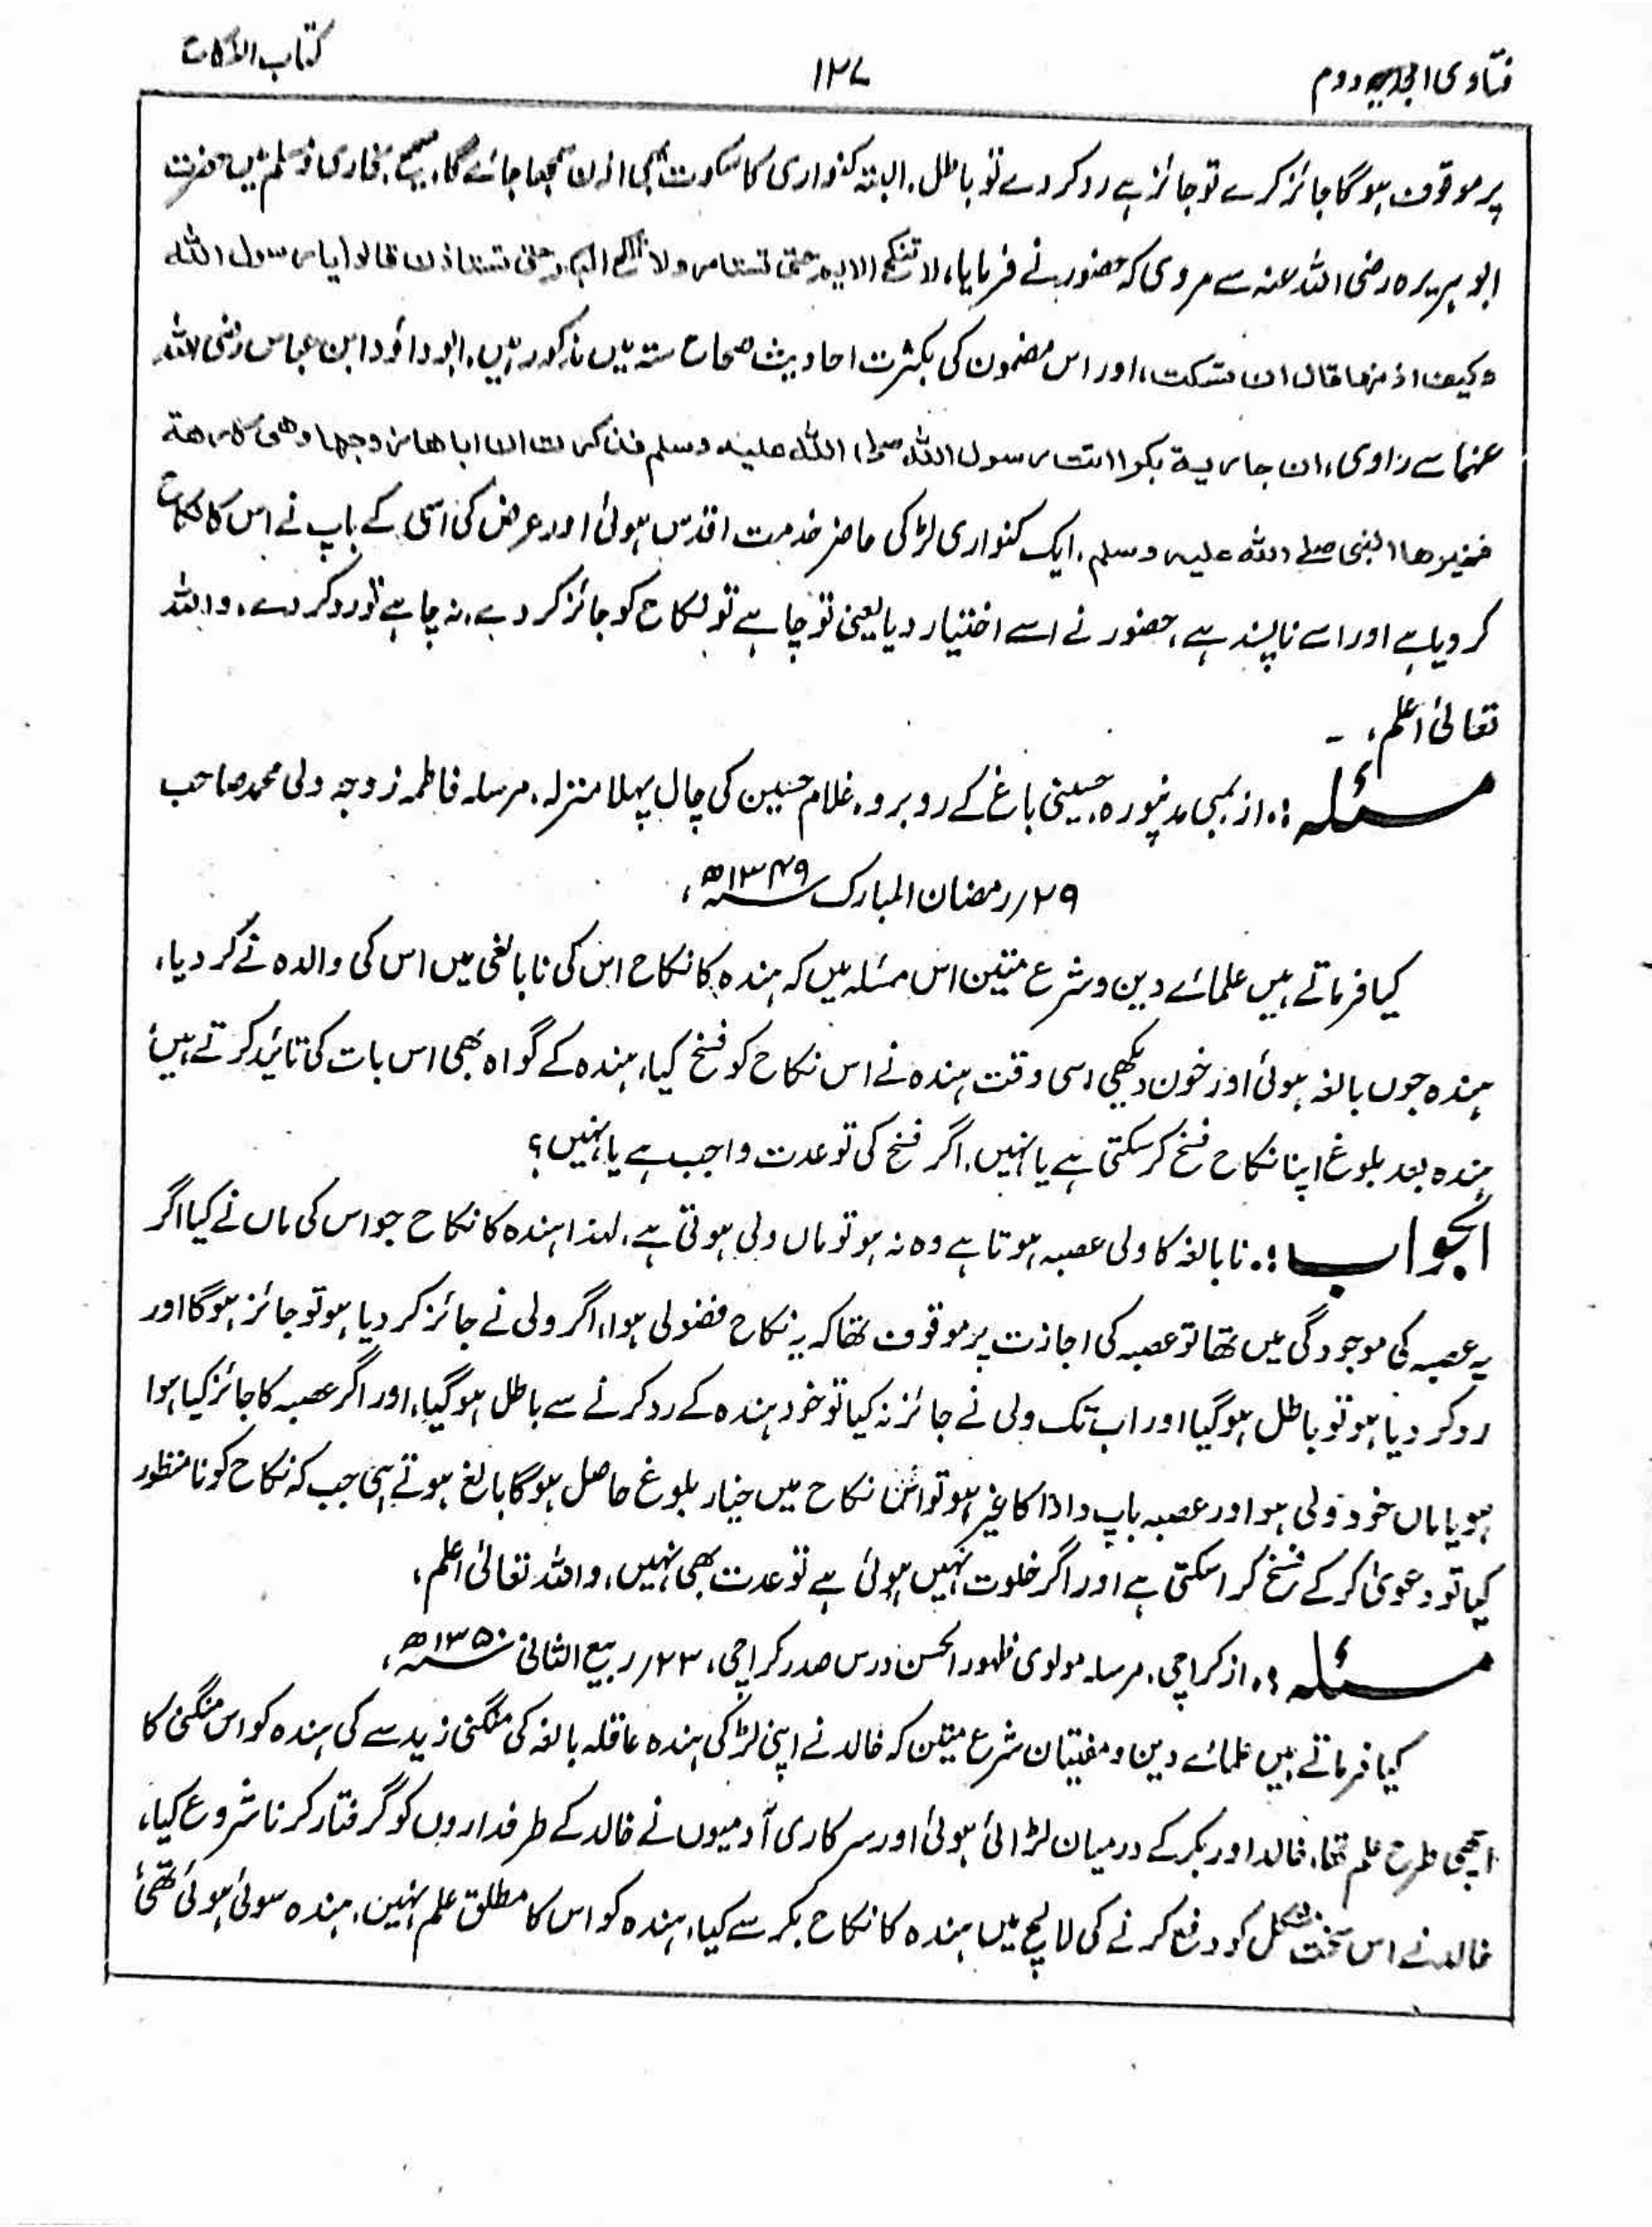 فتاوی امجدیہ دوم
۱۲۷
کتاب النکاح
پر موقوف ہوگا جائز کرے تو جائز ہے رد کر دے تو باطل، البتہ کنواری کا سکوت بھی اذن سمجھا جائے گا، صحیح بخاری و مسلم میں حضرت
ابو ہریرہ رضی اللہ عنہ سے مروی کہ حضور نے فرمایا، لا تنکح الایم حتی تستامر ولا تنکح البکر حتی تستاذن قالوا یا رسول اللہ
وکیف اذنھا قال ان تسکت، اور اس مضمون کی بکثرت احادیث صحاح ستہ میں مذکور ہیں، ابو داؤد ابن عباس رضی اللہ
عنہما سے راوی، ان جاریۃ بکرا اتت رسول اللہ صلی اللہ علیہ وسلم فذکرت ان اباھا زوجھا وھی کارھۃ
فخیرھا النبی صلے اللہ علیہ وسلم، ایک کنواری لڑکی حاضر خدمت اقدس ہوئی اور عرض کی اس کے باپ نے اس کا نکاح
کر دیا ہے اور اسے ناپسند ہے، حضور نے اسے اختیار دیا یعنی تو چاہے تو نکاح کو جائز کر دے، نہ چاہے تو رد کر دے، واللہ
تعالیٰ اعلم، ۔
مسئلہ :۔ از بمبئی مدنپورہ، حسینی باغ کے روبرو، غلام حسین کی چال پہلا منزلہ، مرسلہ فاطمہ زوجہ ولی محمد صاحب
۲۹؍ رمضان المبارک ۱۳۴۹ھ،
کیا فرماتے ہیں علمائے دین و شرع متین اس مسئلہ میں کہ ہندہ کا نکاح اس کی نابالغی میں اس کی والدہ نے کر دیا،
ہندہ جوں بالغہ ہوئی اور خون دیکھی اسی وقت ہندہ نے اس نکاح کو فسخ کیا، ہندہ کے گواہ بھی اس بات کی تائید کرتے ہیں
ہندہ بعد بلوغ اپنا نکاح فسخ کر سکتی ہے یا نہیں، اگر فسخ کی تو عدت واجب ہے یا نہیں؟
الجواب :۔ نابالغہ کا ولی عصبہ ہوتا ہے وہ نہ ہو تو ماں ولی ہوتی ہے، لہذا ہندہ کا نکاح جو اس کی ماں نے کیا اگر
یہ عصبہ کی موجودگی میں تھا تو عصبہ کی اجازت پر موقوف تھا کہ یہ نکاح فضولی ہوا، اگر ولی نے جائز کر دیا ہو تو جائز ہوگا اور
رد کر دیا ہو تو باطل ہوگیا اور اب تک ولی نے جائز نہ کیا تو خود ہندہ کے رد کرنے سے باطل ہوگیا، اور اگر عصبہ کا جائز کیا ہوا
ہو یا ماں خود ولی ہو اور عصبہ باپ دادا کا غیر ہو تو اس نکاح میں خیار بلوغ حاصل ہوگا بالغ ہوتے ہی جب کہ نکاح کو نامنظور
کیا تو دعویٰ کر کے فسخ کرا سکتی ہے اور اگر خلوت نہیں ہوئی ہے تو عدت بھی نہیں، واللہ تعالیٰ اعلم،
مسئلہ :۔ از کراچی، مرسلہ مولوی ظہور الحسن درس صدر کراچی، ۲۳؍ ربیع الثانی ۱۳۵۰ھ،
کیا فرماتے ہیں علمائے دین و مفتیان شرع متین کہ خالد نے اپنی لڑکی ہندہ عاقلہ بالغہ کی منگنی زید سے کی ہندہ کو اس منگنی کا
اچھی طرح علم تھا، خالد اور بکر کے درمیان لڑائی ہوئی اور سرکاری آدمیوں نے خالد کے طرفداروں کو گرفتار کرنا شروع کیا،
خالد نے اس سخت مشکل کو دفع کرنے کی لالچ میں ہندہ کا نکاح بکر سے کیا، ہندہ کو اس کا مطلق علم نہیں، ہندہ سوئی ہوئی تھی